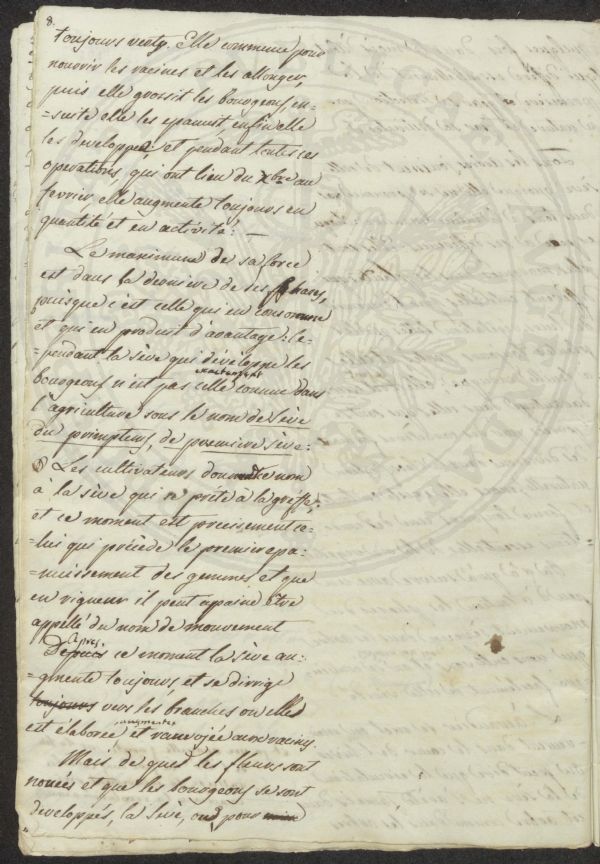 8.
toujours verty. Elle commence pour
nourrir les racines et les allonger,
puis elle grossit les bourgeons en-
=suite elle les epanouit, enfin elle
les developpe; et pendant toutes ces
operations, qui ont lieu du Xbre au
fevrier, elle augmente toujours en
quantité et en activité: —
Le maximum de sa force
est dans la derniere de ses phases,
puisque c'est celle qui en consomme
et qui en produit d'avantage: Ce-
=pendant la sève qui développe les
bourgeons n'est pas celle connue dans
l'agriculture sous le nom de Sève
du printems, de premiere sève:
Les cultivateurs donnent ce nom
à la sève qui se prête à la greffe,
et ce moment est precisement ce-
=lui qui précède le premier epa-
=nuissement des gemmes et que
en vigueur il peut apaine être
appellé du nom de mouvement
Après
Depuis ce moment la sève au-
=gmente toujours et se dirrige
toujours vers les branches ou elle
augmentée
est élaborée, et renvoyée aux racines.
Mais de que les fleurs sont
nouées et que les bourgeons se sont
developpés, la sève, pour